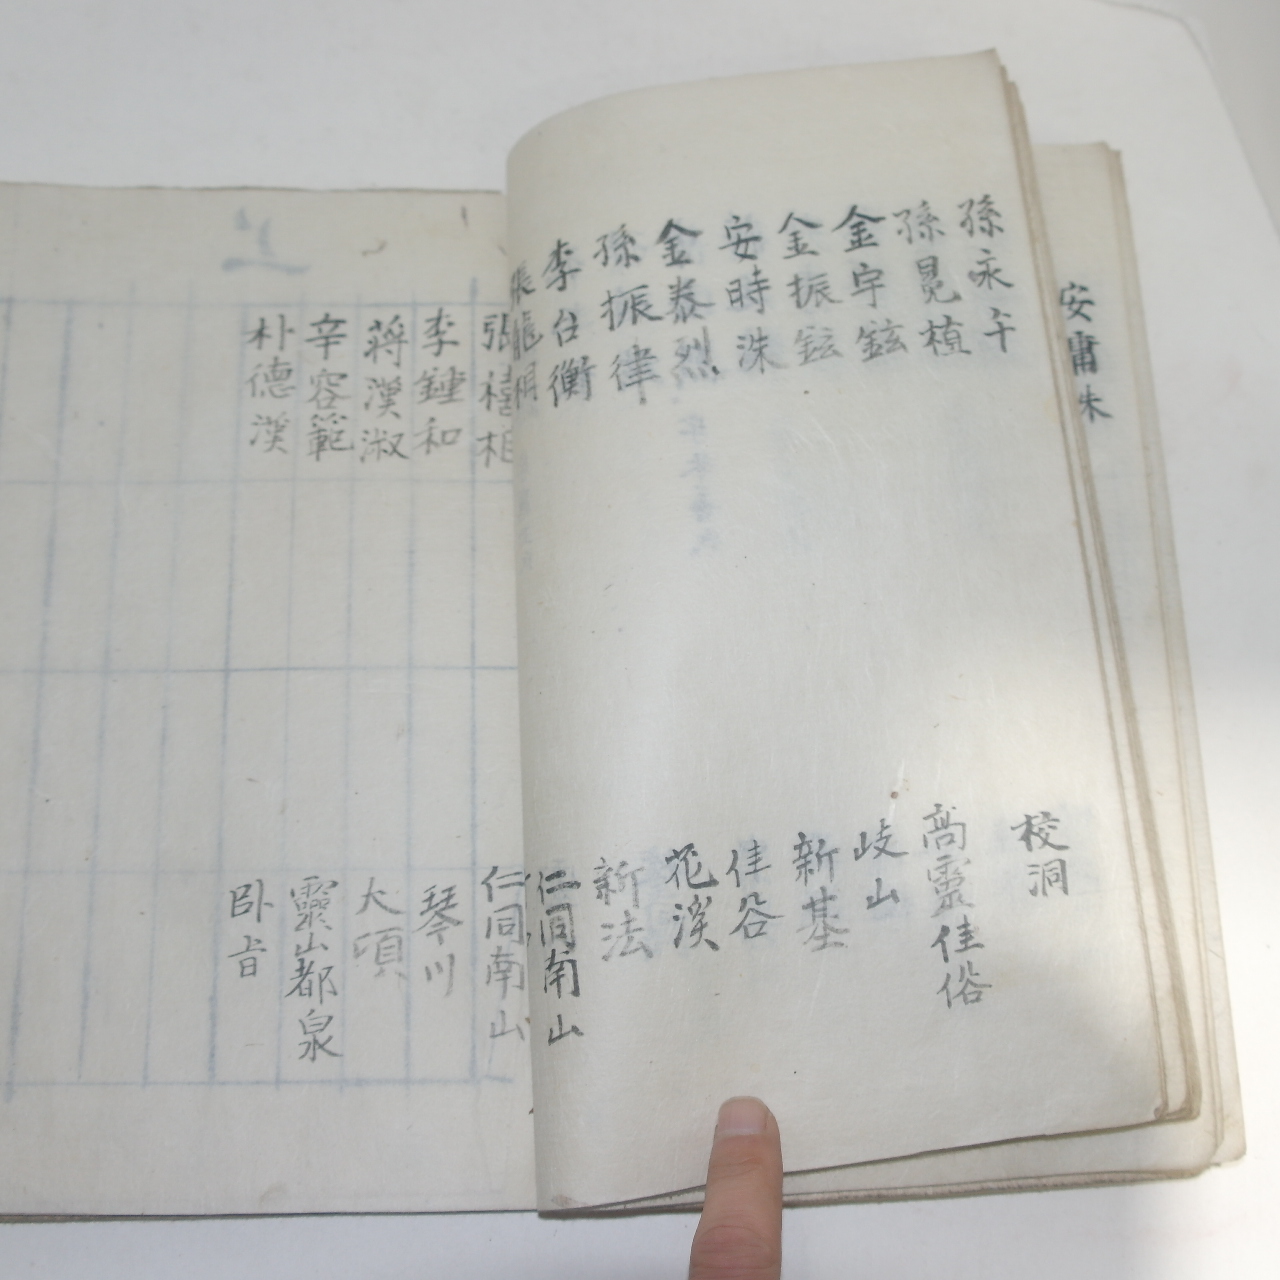 安庸洙
孫永午
校洞
孫晃植
高靈佳俗
金宇鉉
岐山
金振鉉
新基
安時洙
佳谷
金泰烈
花溪
孫振律
新法
李台衡
仁同南山
張龍相
張禧相
仁同南山
李鍾和
琴川
蔣漢淑
大項
辛容範
靈山都泉
朴德漢
卧旹